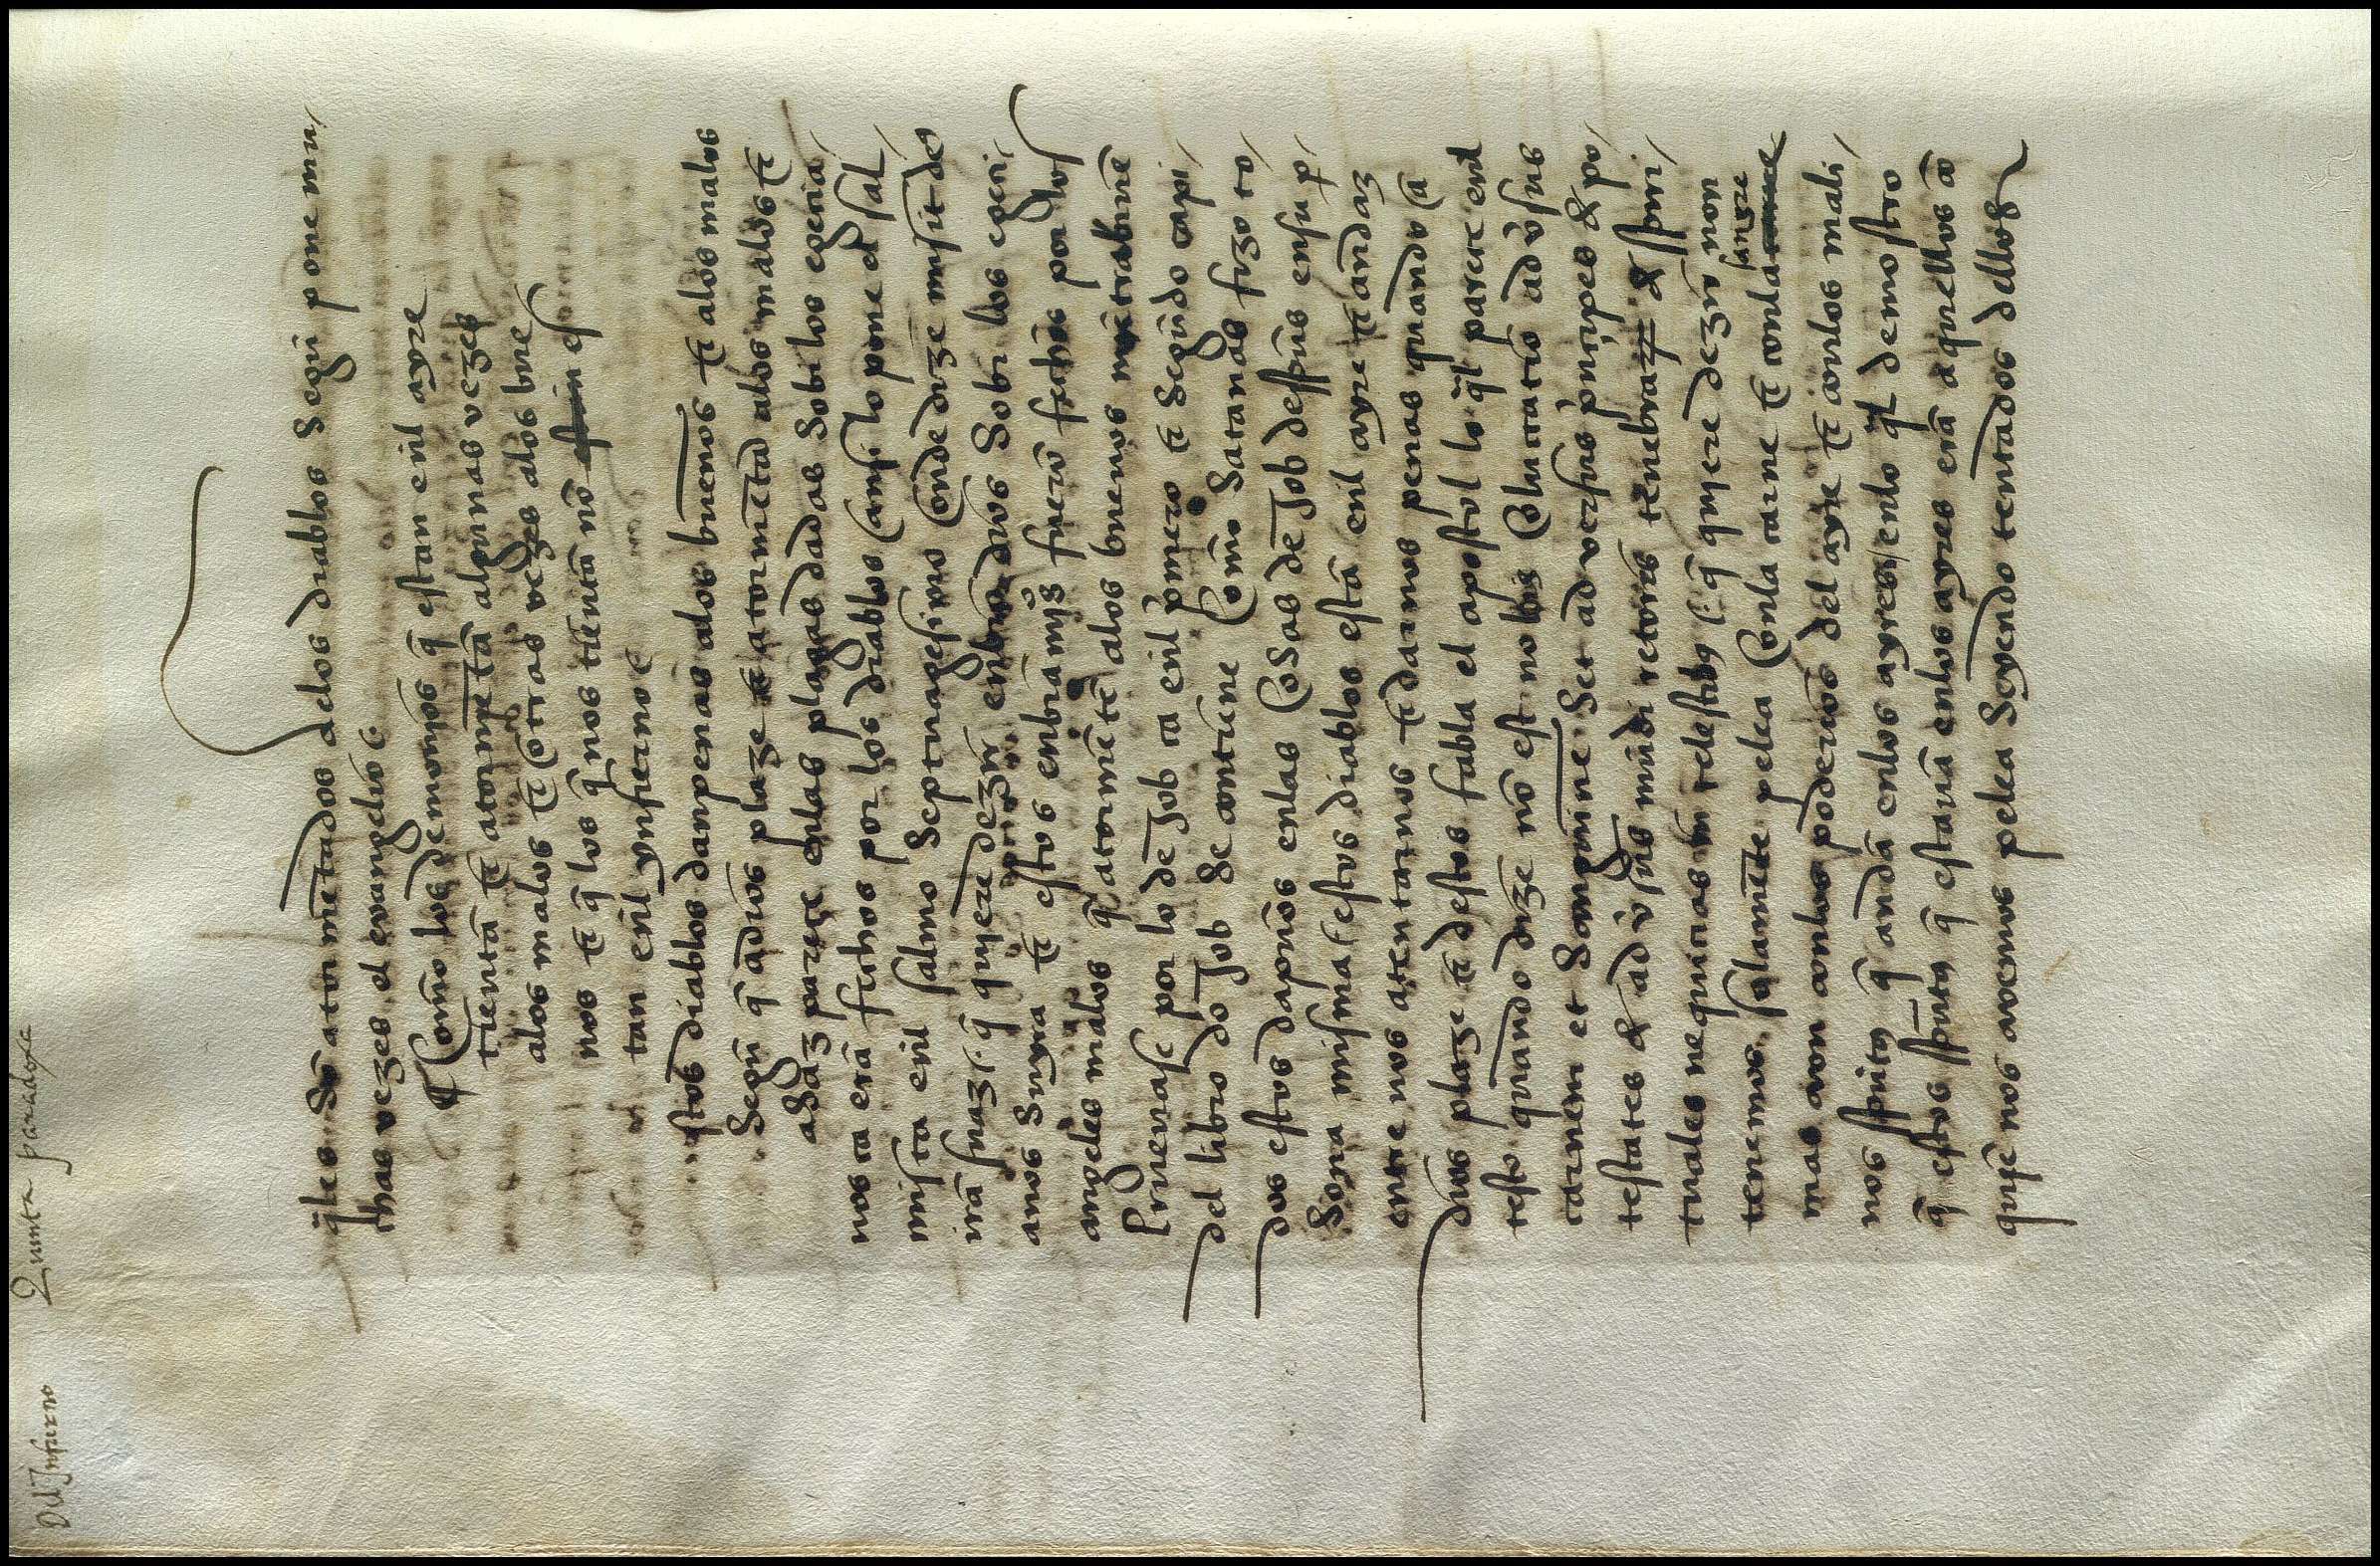 Del Infierno
Quinta paradoxa
q̄les Sō atormētados delos diablos Segūt pone mu/
chas vezes el evangelio
¶ Como los demonjos q̄ estan enl ayre
tientā τ̄ atormētā algunas vezes
alos malos τ̄ otras vezes alos bue
nos τ̄ q̄ los q̄ nos tientā nō es
tan enl ynfierno
estos diablos dan penas alos buenos τ̄ alos malos
Segū q̄ a dios plaze τ̄ atormētā alos malos τ̄
parece enlas plagas dadas Sobr los egecia/
nos ca erā fechos por los diablos ansi lo pone el sal/
mista enl salmo Septuagesimo onde dize misit deꝰ
irā suaz .i. q̄ quyere dezir enbio dios Sobr los egeci/
anos Su yra τ̄ estos enbiamjos fuerō fechos por los
angeles malos q̄ atormētē alos buenos
Pruevase por lo de Job ca enl pmero τ̄ Segūdo capi/
del libro de Job Se contiene Como Satanas fizo to/
dos estos dapños enlas Cosas de Job despues en su p̲/
Sona misma estos diablos estā enl ayre τ̄ andaz
entre nos atentarnos τ̄ darnos penas quando a
dios plaze τ̄ destos fabla el apostol lo q̄l parece enl
testo quando dize nō est nobis Colutatio advsus
carnem et Sangujne Set adversus pncipes & po/
testates & advsus mūdi retores tenebraꝝ & spiri/
tuales nequicias in celestibꝰ .i. q̄ quyere dezir non
tenemos solamēte pelea Conla carne τ̄ conla sangre
mas avn conlos poderios del ayre τ̄ conlos mali/
nos spuitꝰ q̄ andā enlos ayres/ enlo q̄l demostro
q̄ estos spuitꝰ q̄ estavā enlos ayres erā aquellos cō
quyē nos avemos pelea Seyendo tentados dellos